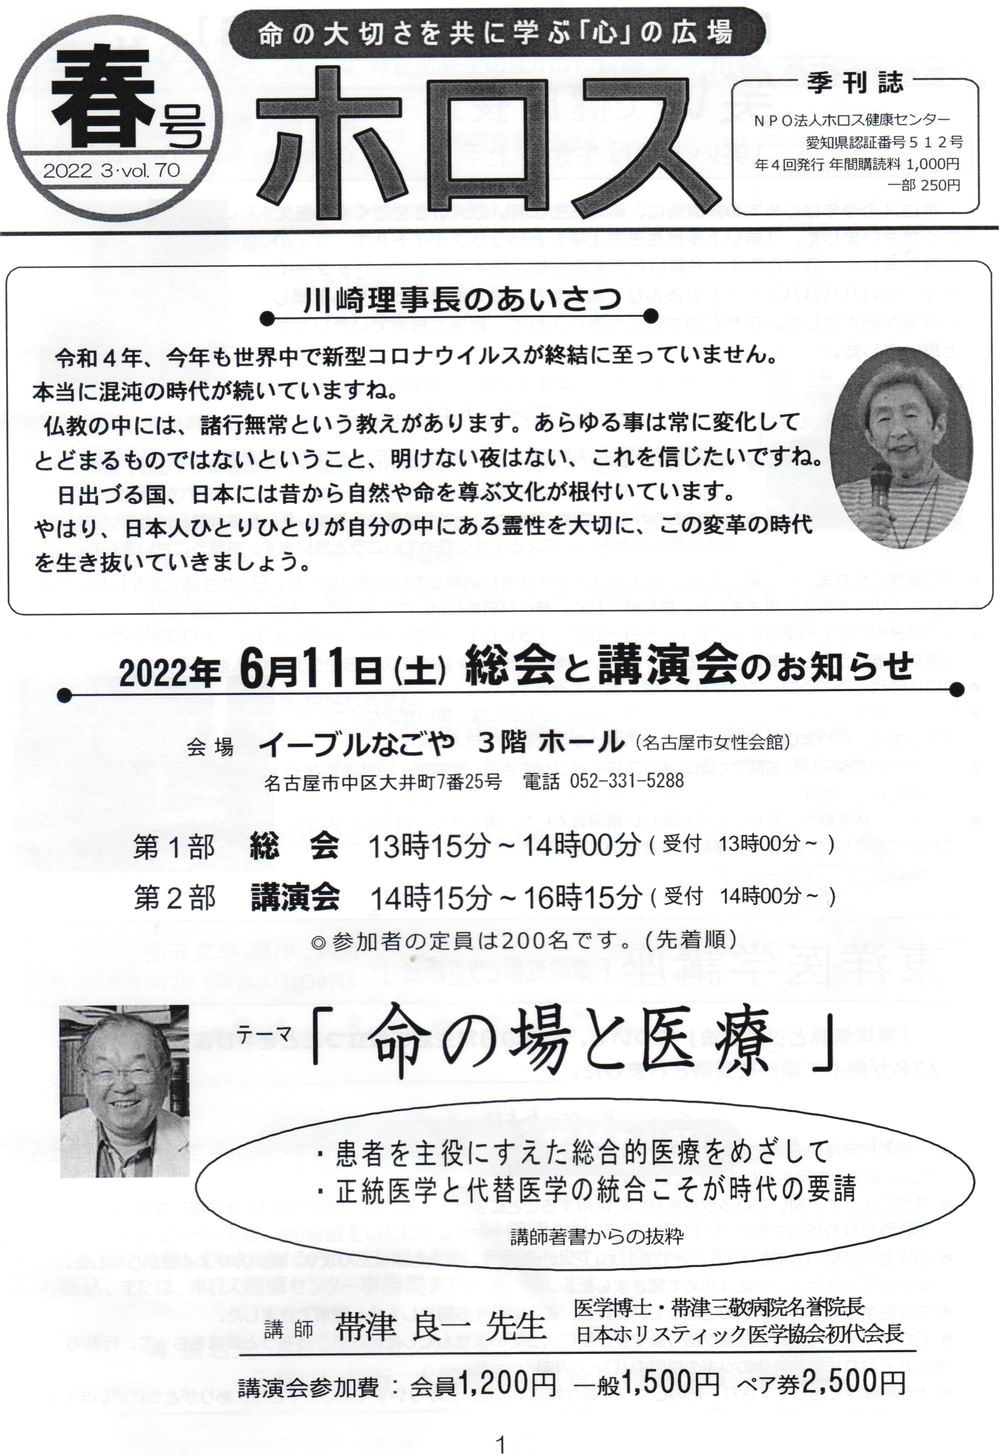 命の大切さを共に学ぶ「心」の広場
春号
2022 3・vol. 70
ホロス
季刊誌
NPO法人ホロス健康センター
愛知県認証番号512号
年4回発行 年間購読料 1,000円
一部 250円
川崎理事長のあいさつ
令和4年、今年も世界中で新型コロナウイルスが終結に至っていません。
本当に混沌の時代が続いていますね。
仏教の中には、諸行無常という教えがあります。あらゆる事は常に変化して
とどまるものではないということ、明けない夜はない、これを信じたいですね。
日出づる国、日本には昔から自然や命を尊ぶ文化が根付いています。
やはり、日本人ひとりひとりが自分の中にある霊性を大切に、この変革の時代
を生き抜いていきましょう。
2022年 6月11日(土) 総会と講演会のお知らせ
会場 イーブルなごや 3階 ホール(名古屋市女性会館)
名古屋市中区大井町7番25号 電話 052-331-5288
第1部 総 会 13時15分～14時00分(受付 13時00分～)
第2部 講演会 14時15分～16時15分(受付 14時00分～)
◎参加者の定員は200名です。(先着順)
テーマ「命の場と医療」
・患者を主役にすえた総合的医療をめざして
・正統医学と代替医学の統合こそが時代の要請
講師著書からの抜粋
講師 帯津 良一 先生
医学博士・帯津三敬病院名誉院長
日本ホリスティック医学協会初代会長
講演会参加費：会員1,200円 一般1,500円 ペア券2,500円
1